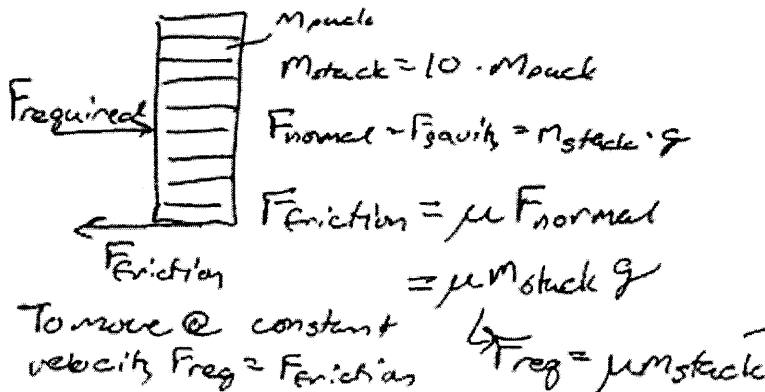 m puck
m stack = 10 · m puck
F required
F normal = F gravity = m stack · g
F friction = μ F normal
F friction
= μ m stack g
To move @ constant
velocity F req = F friction
↳ F req = μ m stack